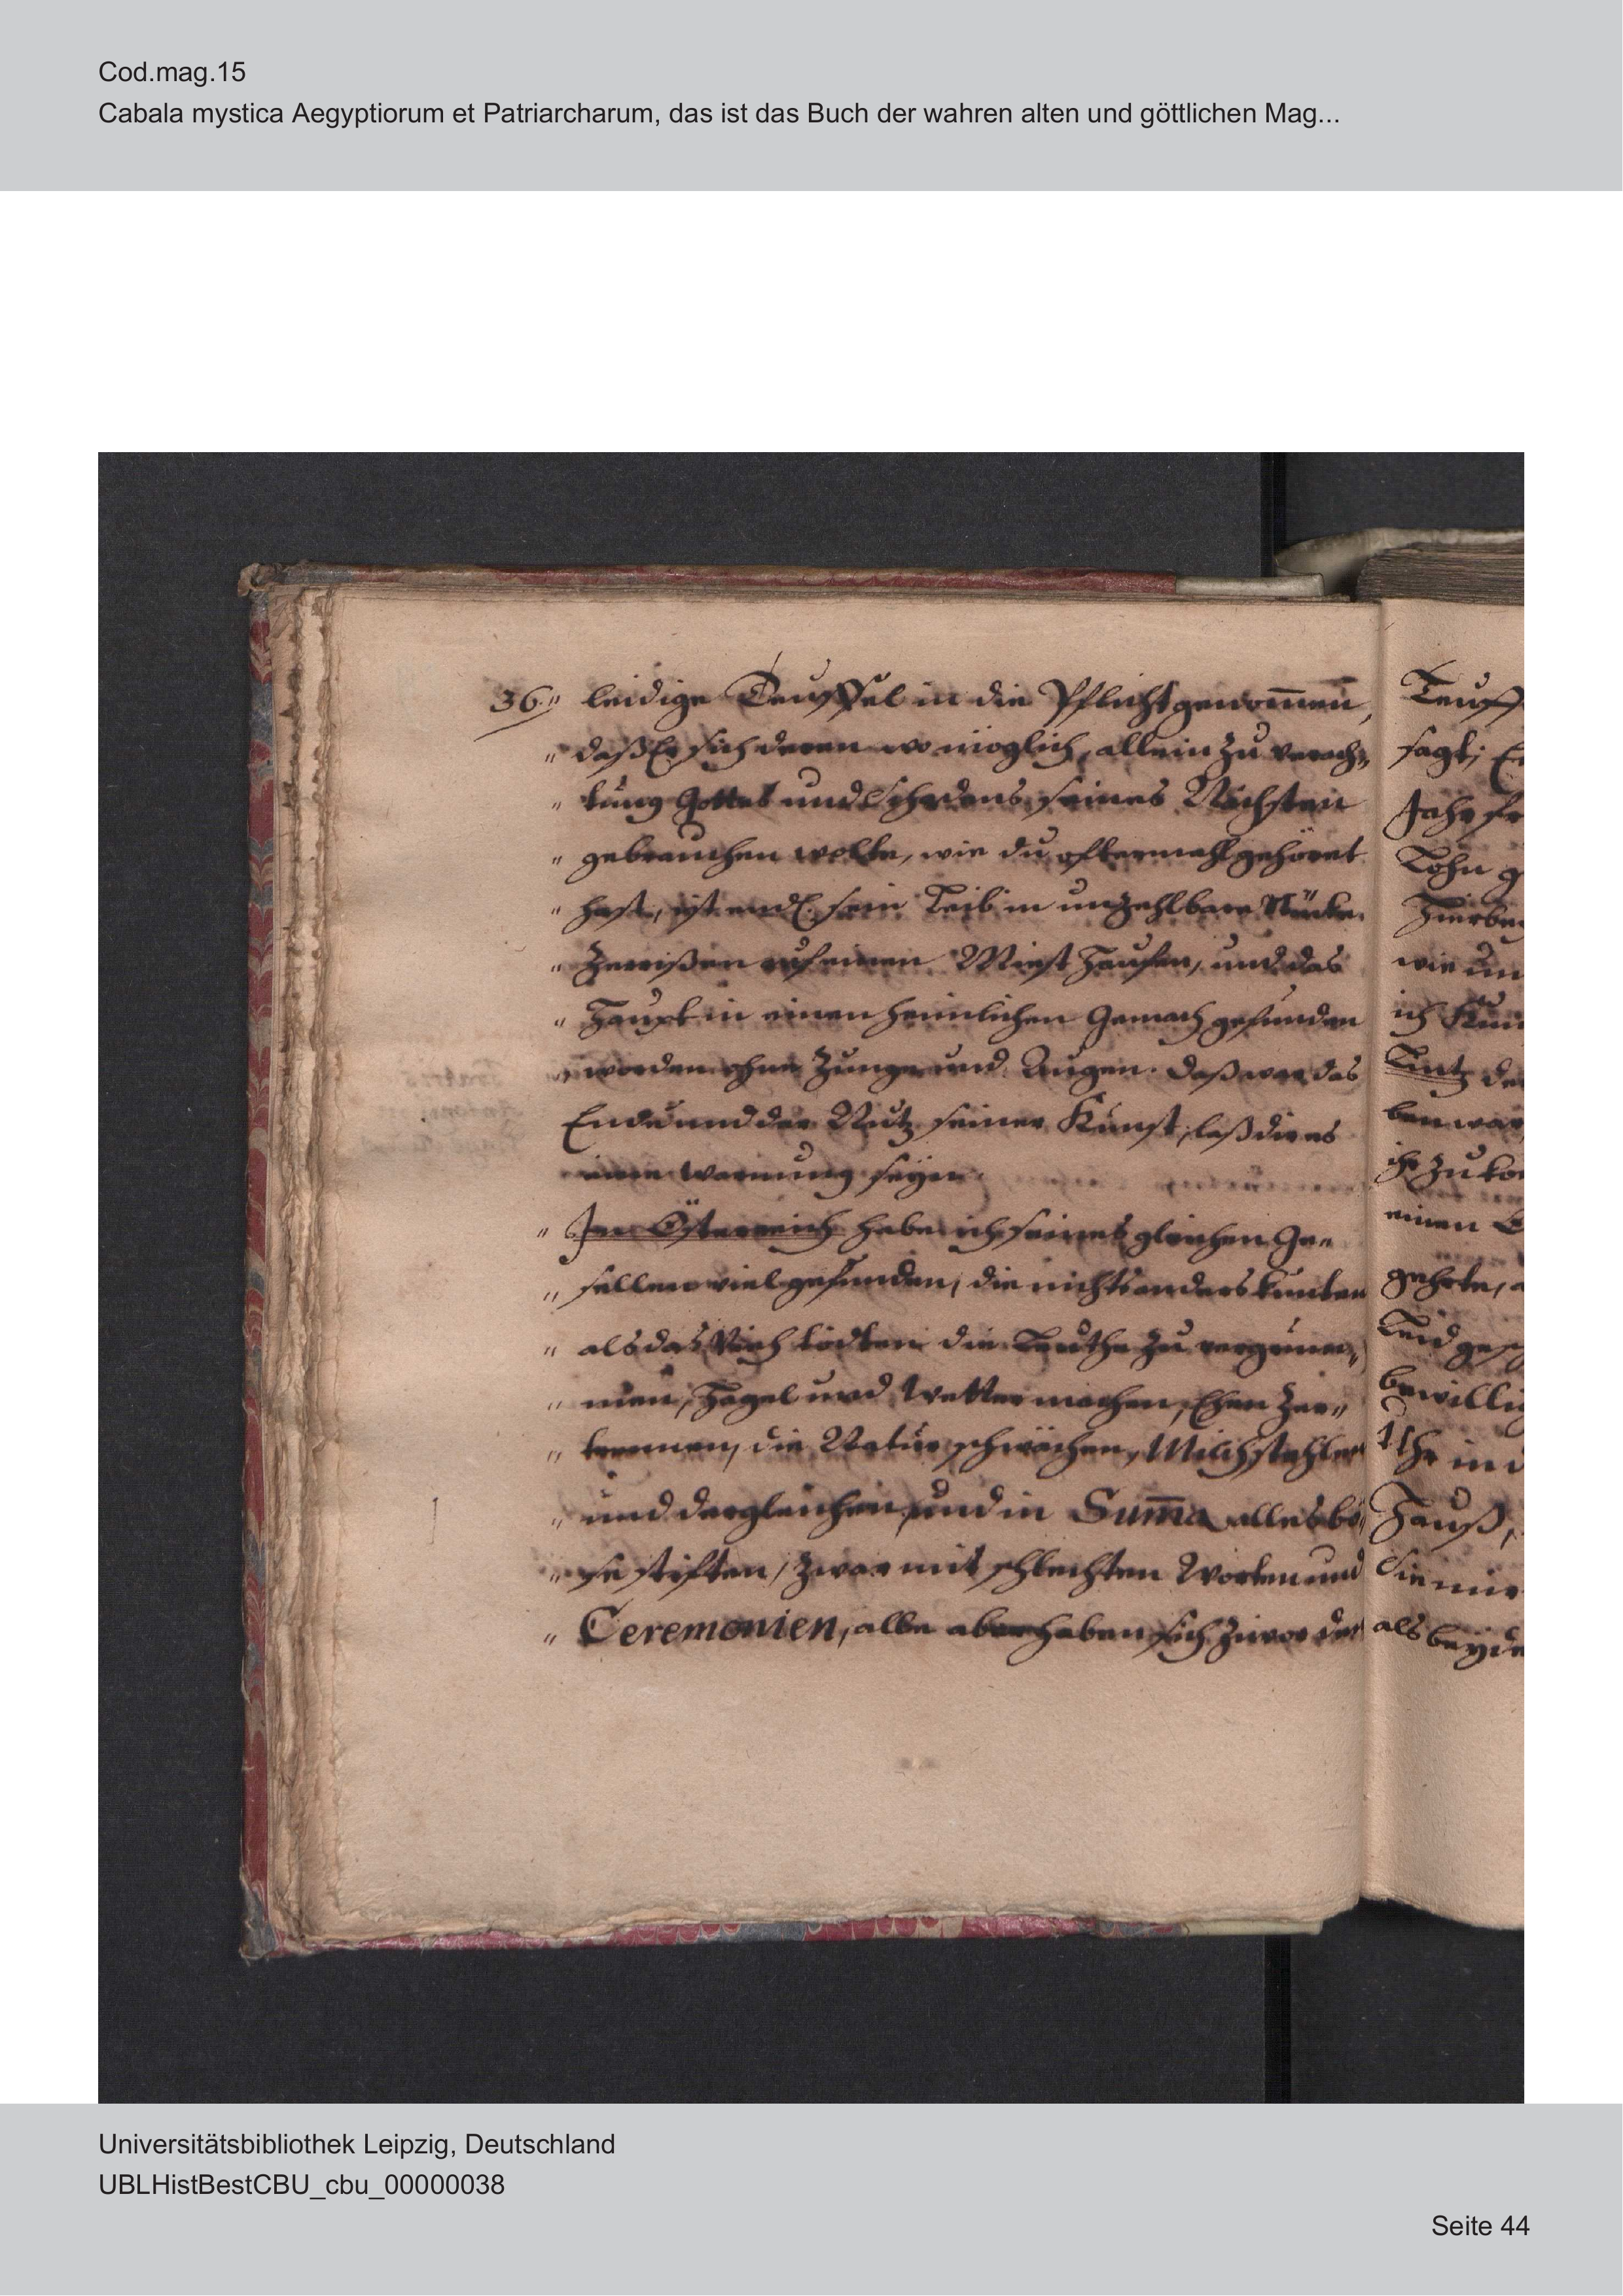 Cod.mag.15
Cabala mystica Aegyptiorum et Patriarcharum, das ist das Buch der wahren alten und göttlichen Mag...
36." leidige Teuffel in die Pflicht genom̄en,
" daß Er sich deren wo möglich, allein zu verach„
" tung Gottes und Schadens seines Nächsten
" gebrauchen wolte, wie du oftermahl gehöret
" hast, ist endl. sein Leib in unzehlbare Stücke
" zerrißen auf einen Mist Haufen, und das
" Haupt in einen heimlichen Gemach gefunden
" worden ohne Zunge und Augen. Daß war das
Ende und der Nutz seiner Kunst, laß dir es
eine Warnung seyn.
" In Österreich habe ich seines gleichen Ge„
" sellen viel gefunden, die nichts anders kunten
" als das Vieh tödten die Leuthe zu
" men, Hagel und Wetter machen, Ehen zer„
" trennen, die Natur schwächen, Milch stehlen
" und dergleichen, und in Sum̄a alles bö„
" se stiften, zwar mit schlechten Worten und
" Ceremonien, alle aber haben sich zuvor der
Teuff
sagt; Er
Jahr
Lohn g
wie un
ich
de
ben war,
ihr zu
einen
gehrte, a
Leid
bewillig
Ihr in d
Hauß,
Sie mir
als beyde
Universitätsbibliothek Leipzig, Deutschland
UBLHistBestCBU_cbu_00000038
Seite 44